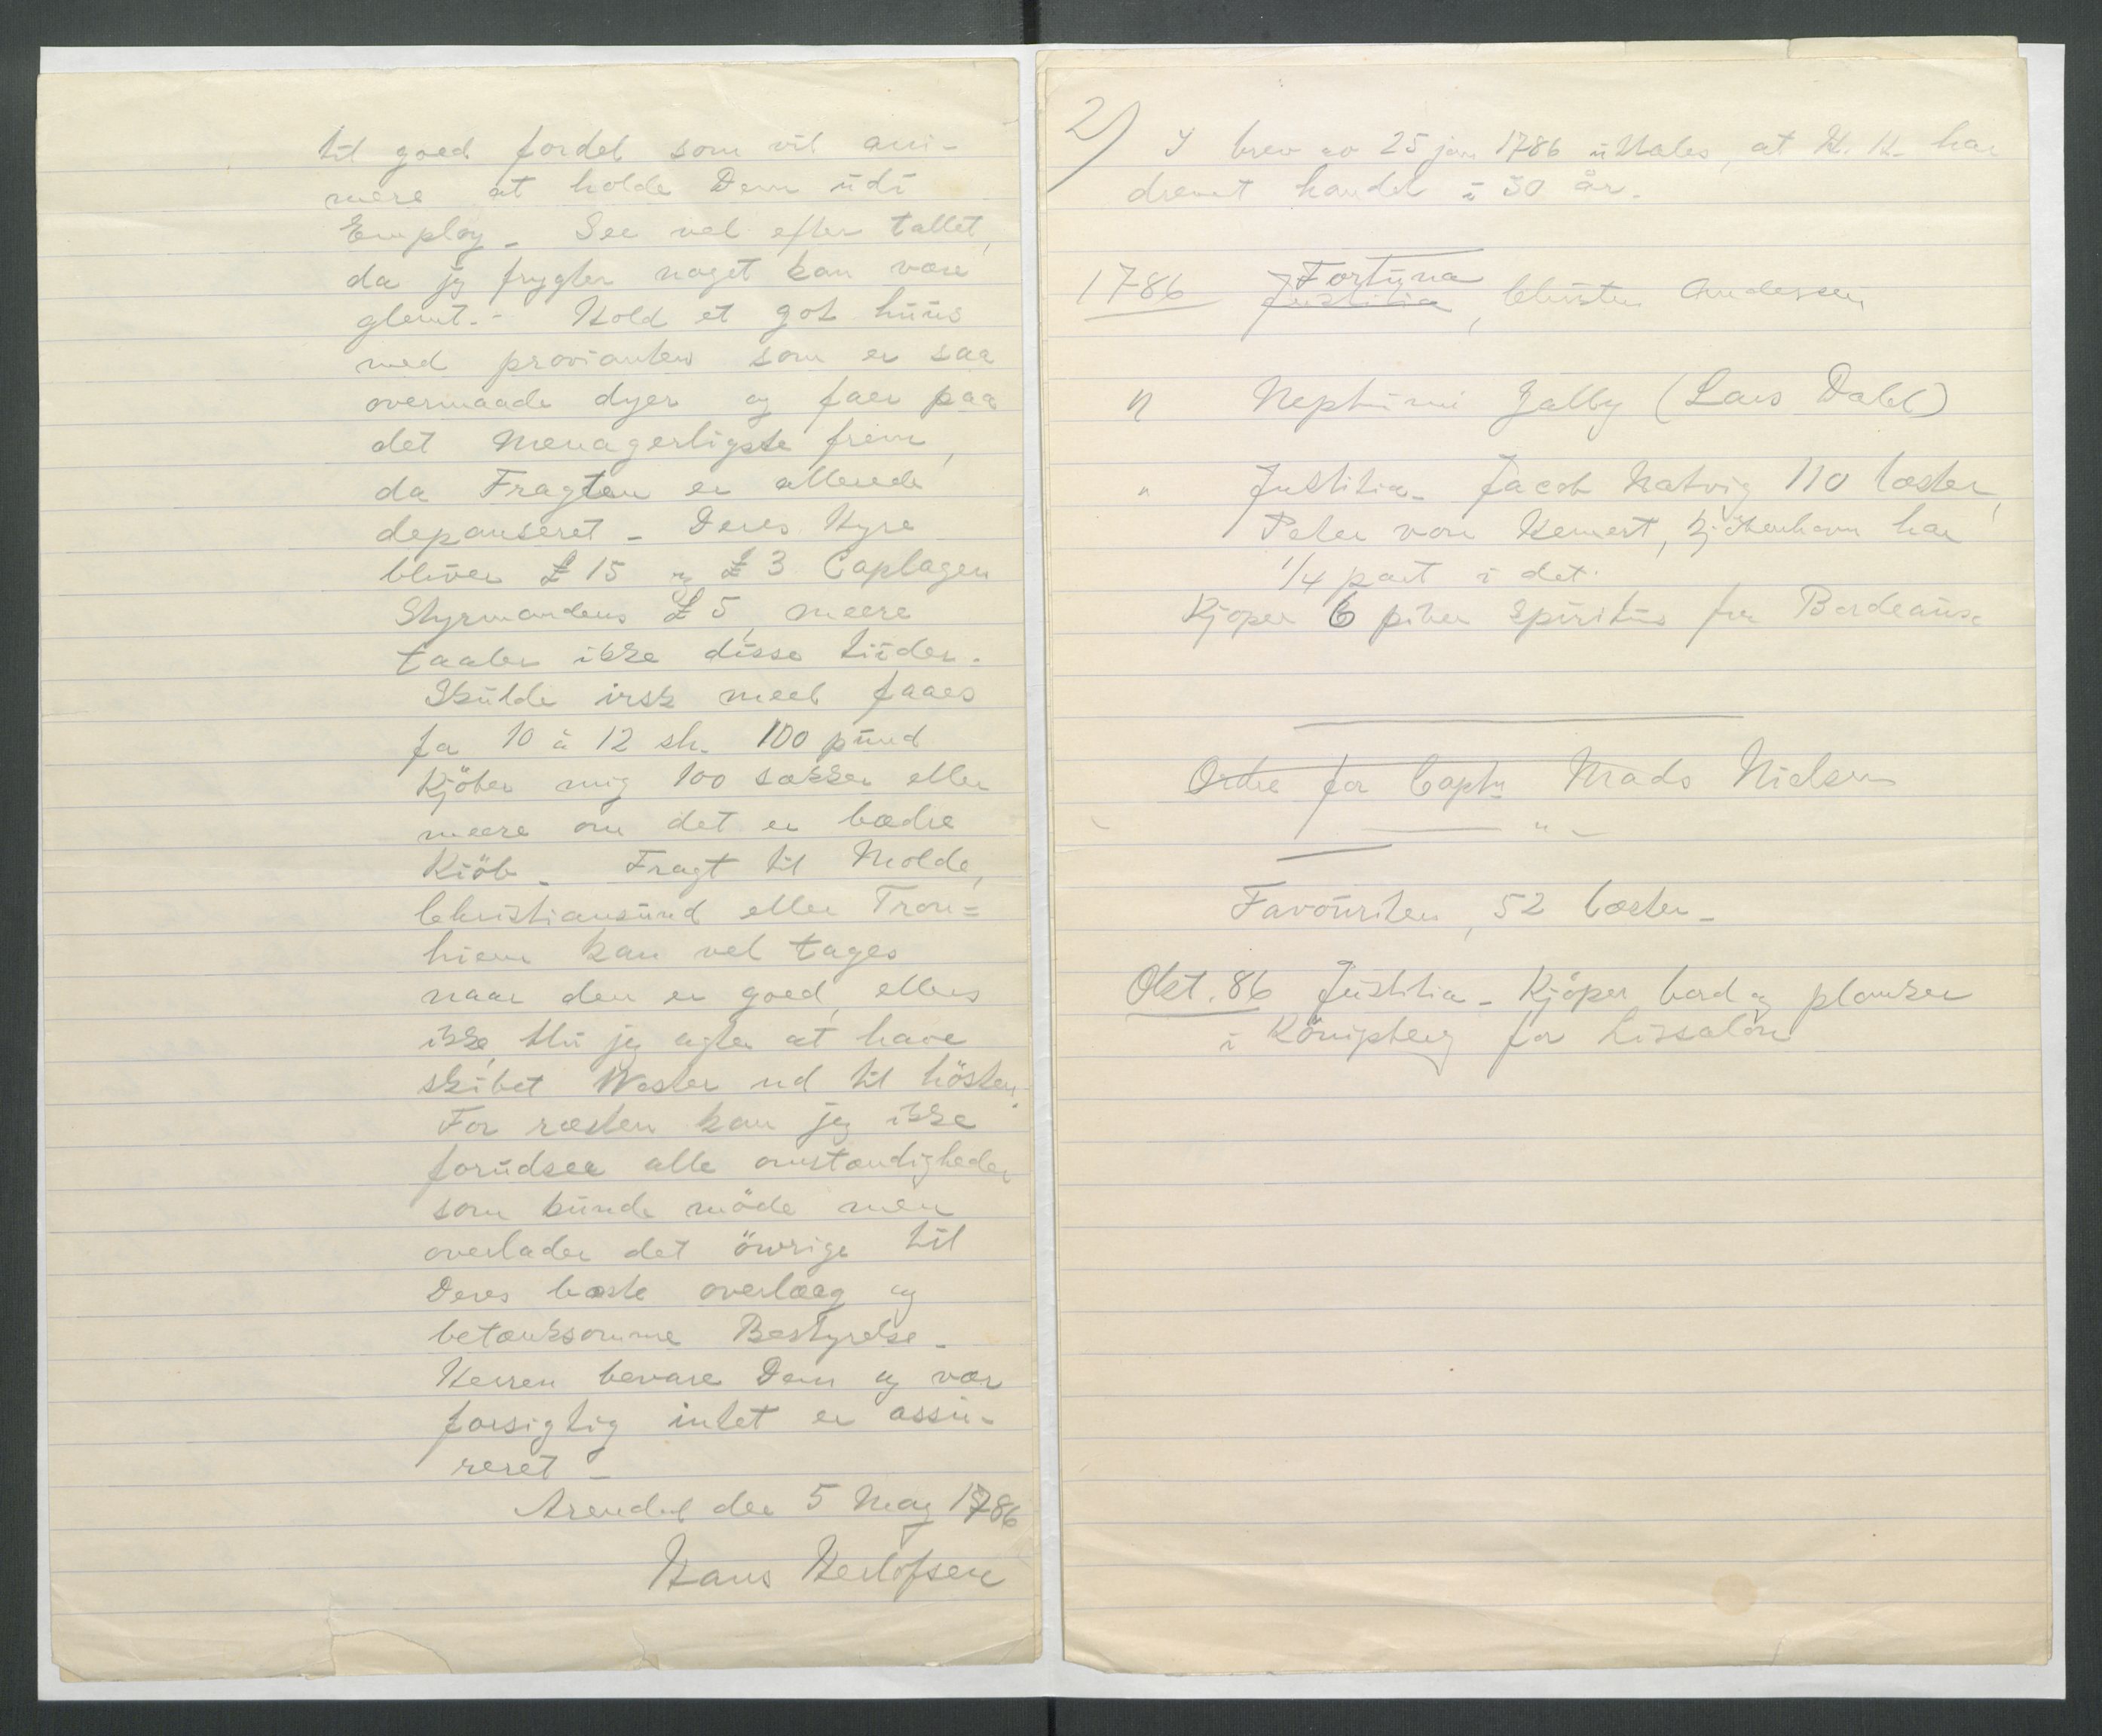 til goed fordel som vil ani-
mere at holde Dem udi
Employ - See vel efter tallet,
da jeg frygter noget kan være
glemt. - Hold et got huus
med provianten som er saa
overmaade dyer og faer paa
det Menagerligste frem,
da Fragten er allerede
depanseret - Deres Hyre
bliver £ 15 og £ 3 Caplagen
Styrmandens £ 5, meere
taaler ikke disse tiider.
Skulde irsk meel faaes
fra 10 à 12 sh. 100 pund
Kjöber mig 100 sækker eller
meere om det er bædre
Kiöb - Fragt til Molde,
Christiansund eller Tron=
hiem kan vel tages
naar den er goed, ellers
ikke, thi jeg agter at have
skibet Wester ud til hösten.
For ræsten kan jeg ikke
forudsee alle omstændigheder
som kunde möde men
overlader det öwrige til
Deres bæste overlæg og
betænksomme Bestyrelse -
Herren bevare Dem og vær
forsigtig intet er assu-
reret -
Arendal den 5 May 1786
Hans Herlofsen
2) I brev av 25 jan 1786 uttales, at H. H. har
drevet handel i 30 år.
1786 Justitia Fortuna, Christen Andersen
" Neptuni Jalby (Lars Dahl)
" Justitia - Jacob Natvig 110 læster,
Peter von Kemert, Kjöbenhavn har
1/4 part i det.
Kjøper 6 piber Spiritus fra Bordeaux
Ordre for Captn Mads Nielsen
— " —
Favouriten, 52 læster -
Okt. 86 Justitia - Kjöper bord og planker
i Königsberg for Lissabon